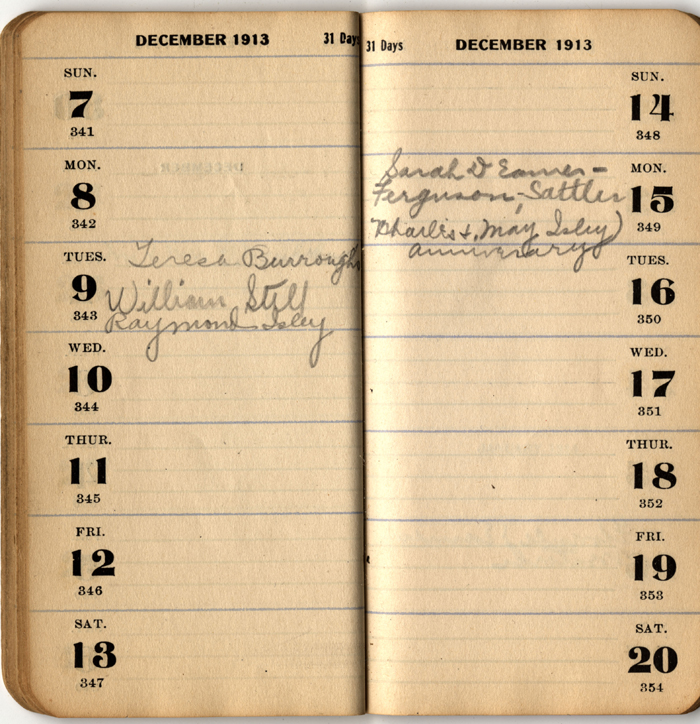 DECEMBER 1913 31 Days
SUN.
7
341
MON.
8
342
TUES.
9
343
Teresa Burroughs
William Still
Raymond Isley
WED.
10
344
THUR.
11
345
FRI.
12
346
SAT.
13
347
31 Days DECEMBER 1913
SUN.
14
348
MON.
15
349
Sarah D Eames-
Ferguson, Sattler
Charles & May Isley)
anniversary
TUES.
16
350
WED.
17
351
THUR.
18
352
FRI.
19
353
SAT.
20
354